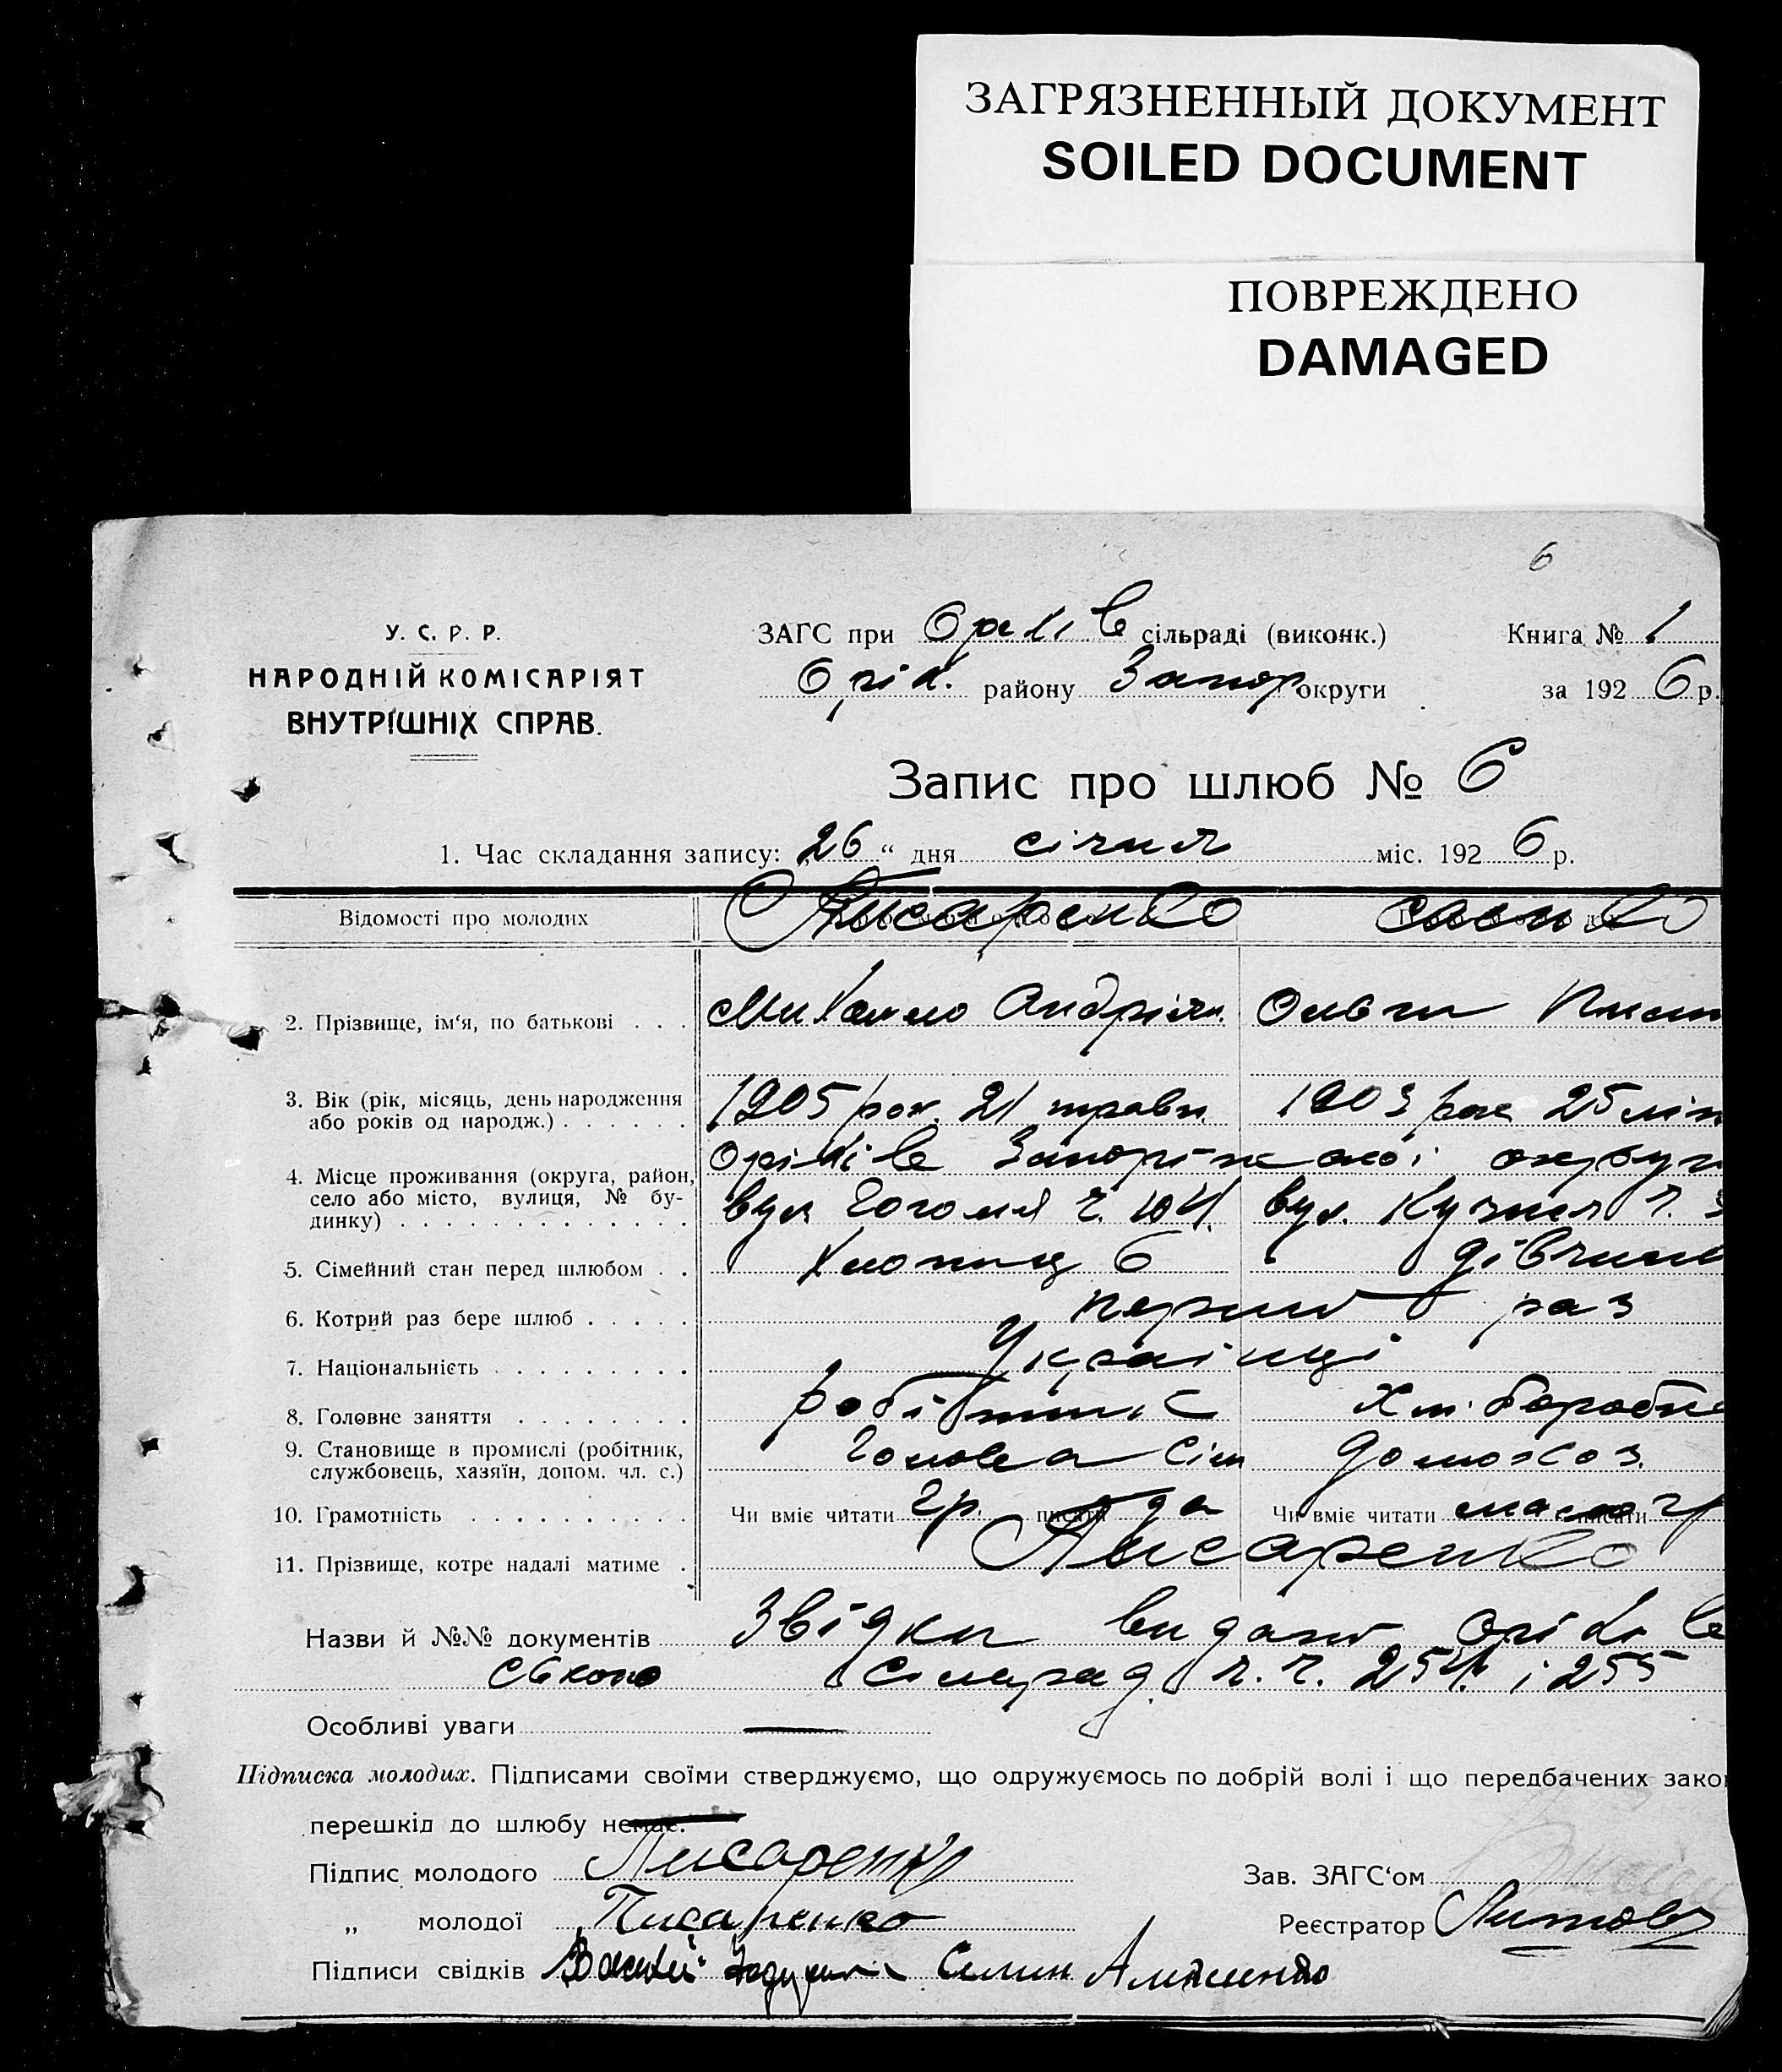 ЗАГРЯЗНЕННЫЙ ДОКУМЕНТ
SOILED DOCUMENT
ПОВРЕЖДЕНО
DAMAGED
6
У. С. Р. Р.
НАРОДНІЙ КОМІСАРІЯТ
ВНУТРІШНІХ СПРАВ.
ЗАГС при Оріхів сільраді (виконк.) Книга № 1
Оріх. району Запор округи за 1926 р.
Запис про шлюб № 6
1. Час складання запису: „26“ дня січня міс. 1926 р.
Відомості про молодих Писаренко
2. Прізвище, ім‘я, по батькові . . . Михайло Андрійов. Ольга
3. Вік (рік, місяць, день народження 1905 рок. 21 травн. 1903 рок 25 лип
або років од народж.) . . . . . .
4. Місце проживання (округа, район, Оріхів Запоріжської округи
село або місто, вулиця, № бу- вул Гоголя ч. 104. вул. ч.
динку) . . . . . . . . . . . . .
5. Сімейний стан перед шлюбом . . Хлопец дівчина
6. Котрий раз бере шлюб . . . . . перший раз
7. Національність . . . . . . . . . Українці
8. Головне заняття . . . . . . . . робітник хлібороб
9. Становище в промислі (робітник, Голова сім домохоз.
службовець, хазяїн, допом. чл. с.)
10. Грамотність . . . . . . . . . . Чи вміє читати гр. писати да Чи вміє читати мало писати гр
11. Прізвище, котре надалі матиме . Писаренко
Назви й №№ документів Звідки видані Оріхів
Сільрад. ч. ч. 254. і 255
Особливі уваги —
Підписка молодих. Підписами своїми стверджуємо, що одружуємось по добрій волі і що передбачених зако
перешкід до шлюбу немає.
Підпис молодого Писаренко Зав. ЗАГС‘ом
„ молодої Писаренко Реєстратор
Підписи свідків